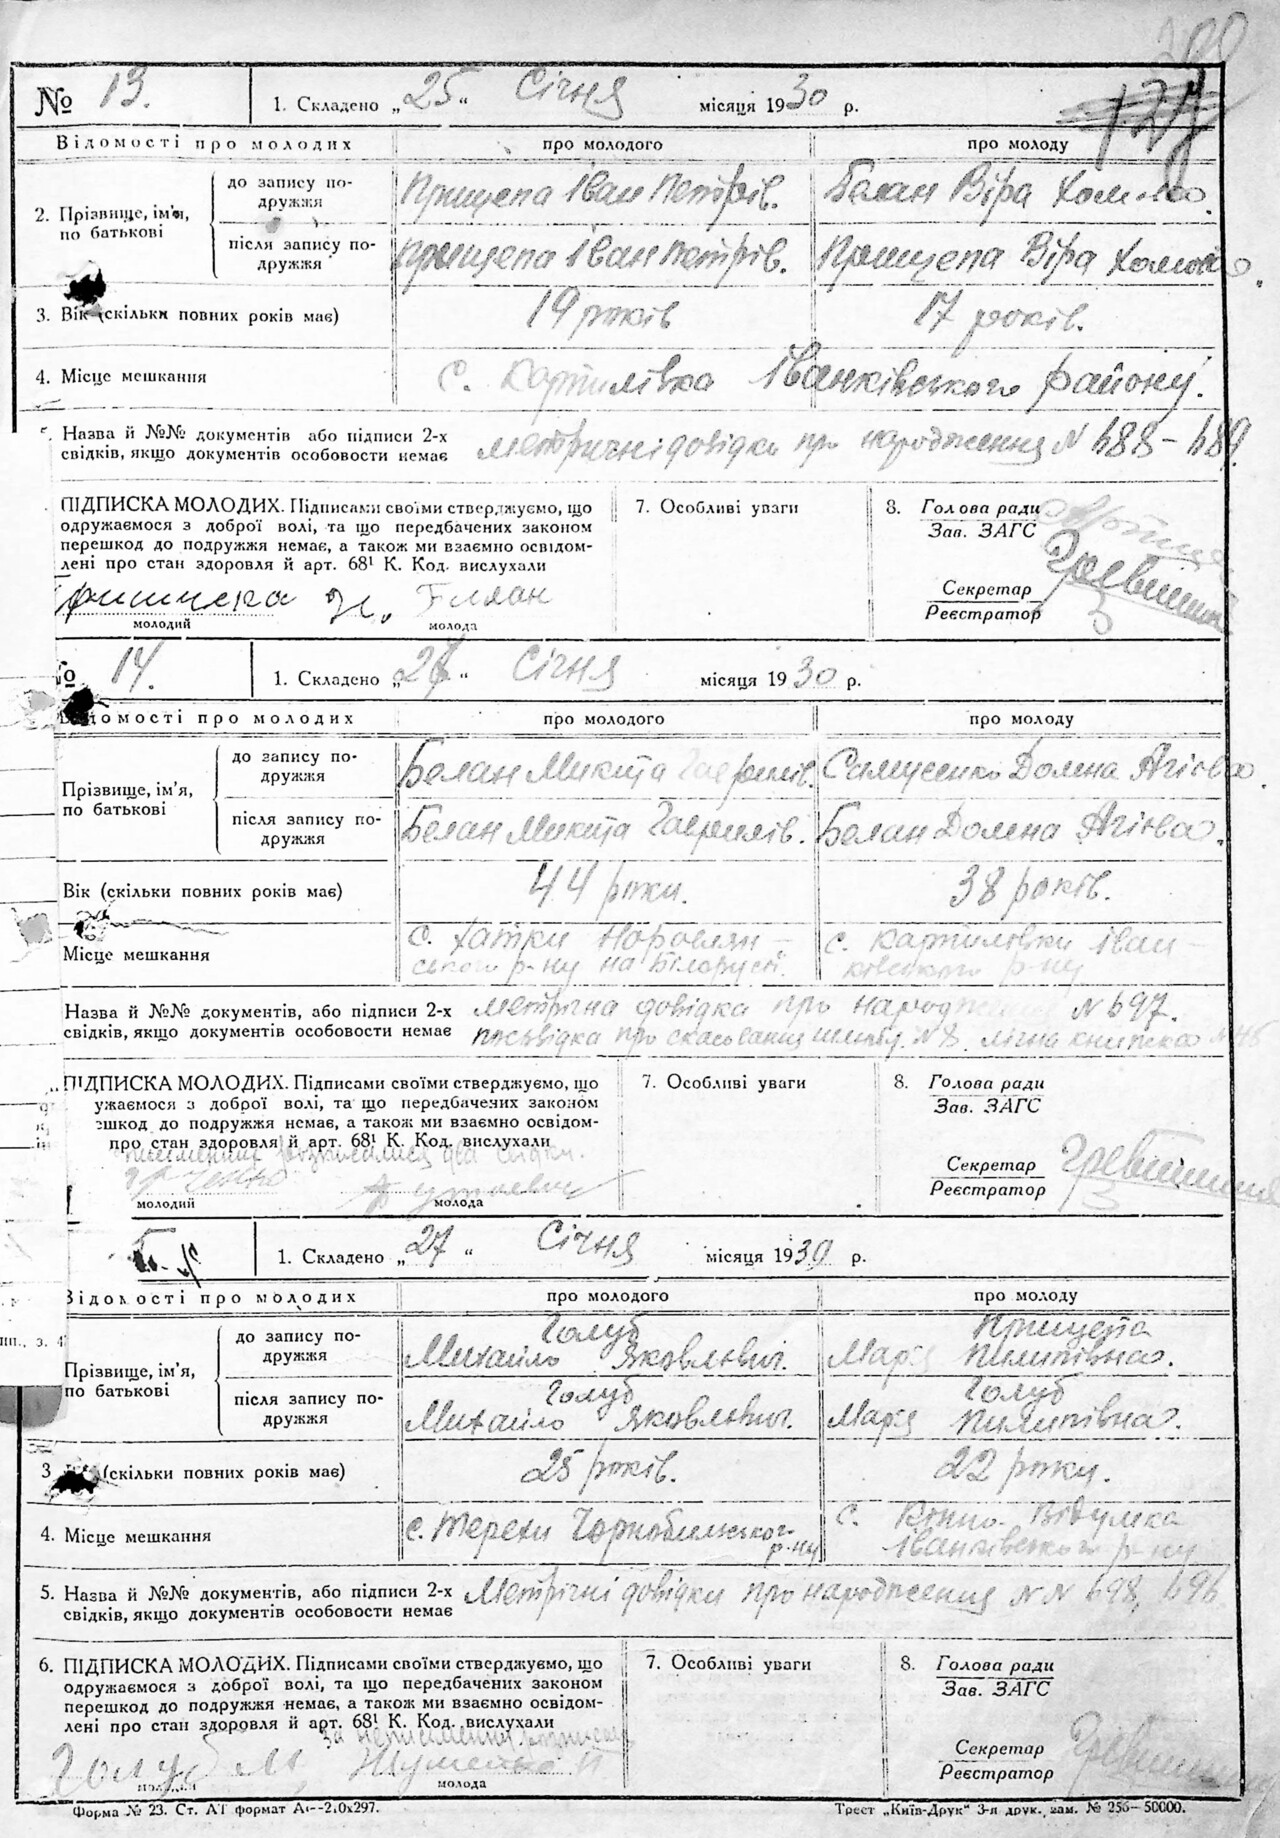 № 13. 1. Складено „25“ Січня місяця 1930 р.
Відомості про молодих про молодого про молоду
2. Прізвище, ім'я, по батькові до запису подружжя Прищепа Іван Петрів. Белан Віра
після запису подружжя Прищепа Іван Петрів. Прищепа Віра Хомова.
3. Вік (скільки повних років має) 19 років 17 років.
4. Місце мешкання с. Карпилівка Іванківського району.
Назва й №№ документів або підписи 2-х метричні довідки про народження N 688-689.
свідків, якщо документів особовости немає
ПІДПИСКА МОЛОДИХ. Підписами своїми стверджуємо, що 7. Особливі уваги 8. Голова ради
одружаємося з доброї волі, та що передбачених законом Зав. ЗАГС
перешкод до подружжя немає, а також ми взаємно освідом-
лені про стан здоровля й арт. 68¹ К. Код. вислухали Секретар
Белан Реєстратор
молодий молода
№ 14. 1. Складено „27“ Січня місяця 1930 р.
Відомості про молодих про молодого про молоду
Прізвище, ім'я, по батькові до запису подружжя Белан Микита Гаврилів. Самусенко Домна
після запису подружжя Белан Микита Гаврилів. Белан Домна
Вік (скільки повних років має) 44 роки. 38 років.
Місце мешкання с. Хатки Наровлян- с. Карпиловки Іван-
ського р-ну на Білорусі. ківського р-ну
Назва й №№ документів, або підписи 2-х Метрична довідка про народження N 697.
свідків, якщо документів особовости немає посвідка про скасування шлюбу N 8.
ПІДПИСКА МОЛОДИХ. Підписами своїми стверджуємо, що 7. Особливі уваги 8. Голова ради
ужаємося з доброї волі, та що передбачених законом Зав. ЗАГС
ешкод до подружжя немає, а також ми взаємно освідом-
про стан здоровля й арт. 68¹ К. Код. вислухали Секретар
розписалися два свідки. Реєстратор
молодий молода
1. Складено „27“ Січня місяця 1930 р.
Відомості про молодих про молодого про молоду
Прізвище, ім'я, по батькові до запису подружжя Голуб Михайло Яковлович. Прищепа Марія Пилипівна.
після запису подружжя Голуб Михайло Яковлович. Голуб Марія Пилипівна.
3. (скільки повних років має) 25 років. 22 роки.
4. Місце мешкання с. Терехи Чорнобильського р-ну с. Відумка Іванківського р-ну
5. Назва й №№ документів, або підписи 2-х Метричні довідки про народження N N 698, 696
свідків, якщо документів особовости немає
6. ПІДПИСКА МОЛОДИХ. Підписами своїми стверджуємо, що 7. Особливі уваги 8. Голова ради
одружаємося з доброї волі, та що передбачених законом Зав. ЗАГС
перешкод до подружжя немає, а також ми взаємно освідом-
лені про стан здоровля й арт. 68¹ К. Код. вислухали
Секретар
Голуб М. Реєстратор
молода
Форма № 23. Ст. А1 формат А4—210х297. Трест „Київ-Друк“ 3-я друк. зам. № 256—50000.